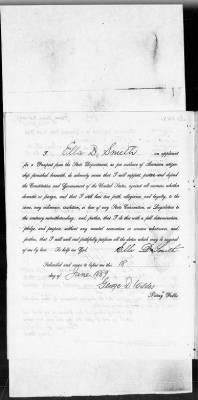 I Ella D. Smith an applicant
for a Passport from the State Department, as per evidence of American citizen-
ship furnished herewith, do solemnly swear that I will support, protect and defend
the Constitution and Government of the United States, against all enemies, whether
domestic or foreign, and that I will bear true faith, allegiance, and loyalty, to the
same, any ordinance, resolution, or law of any State Convention, or Legislature to
the contrary notwithstanding; and, further, that I do this with a full determination,
pledge, and purpose without any mental reservation or evasion whatsoever, and,
further, that I will well and faithfully perform all the duties which may be required
of me by law. So help me God.
Ella D. Smith
Subscribed and sworn to before me this 18
day of June 1889
George D.
Notary Public